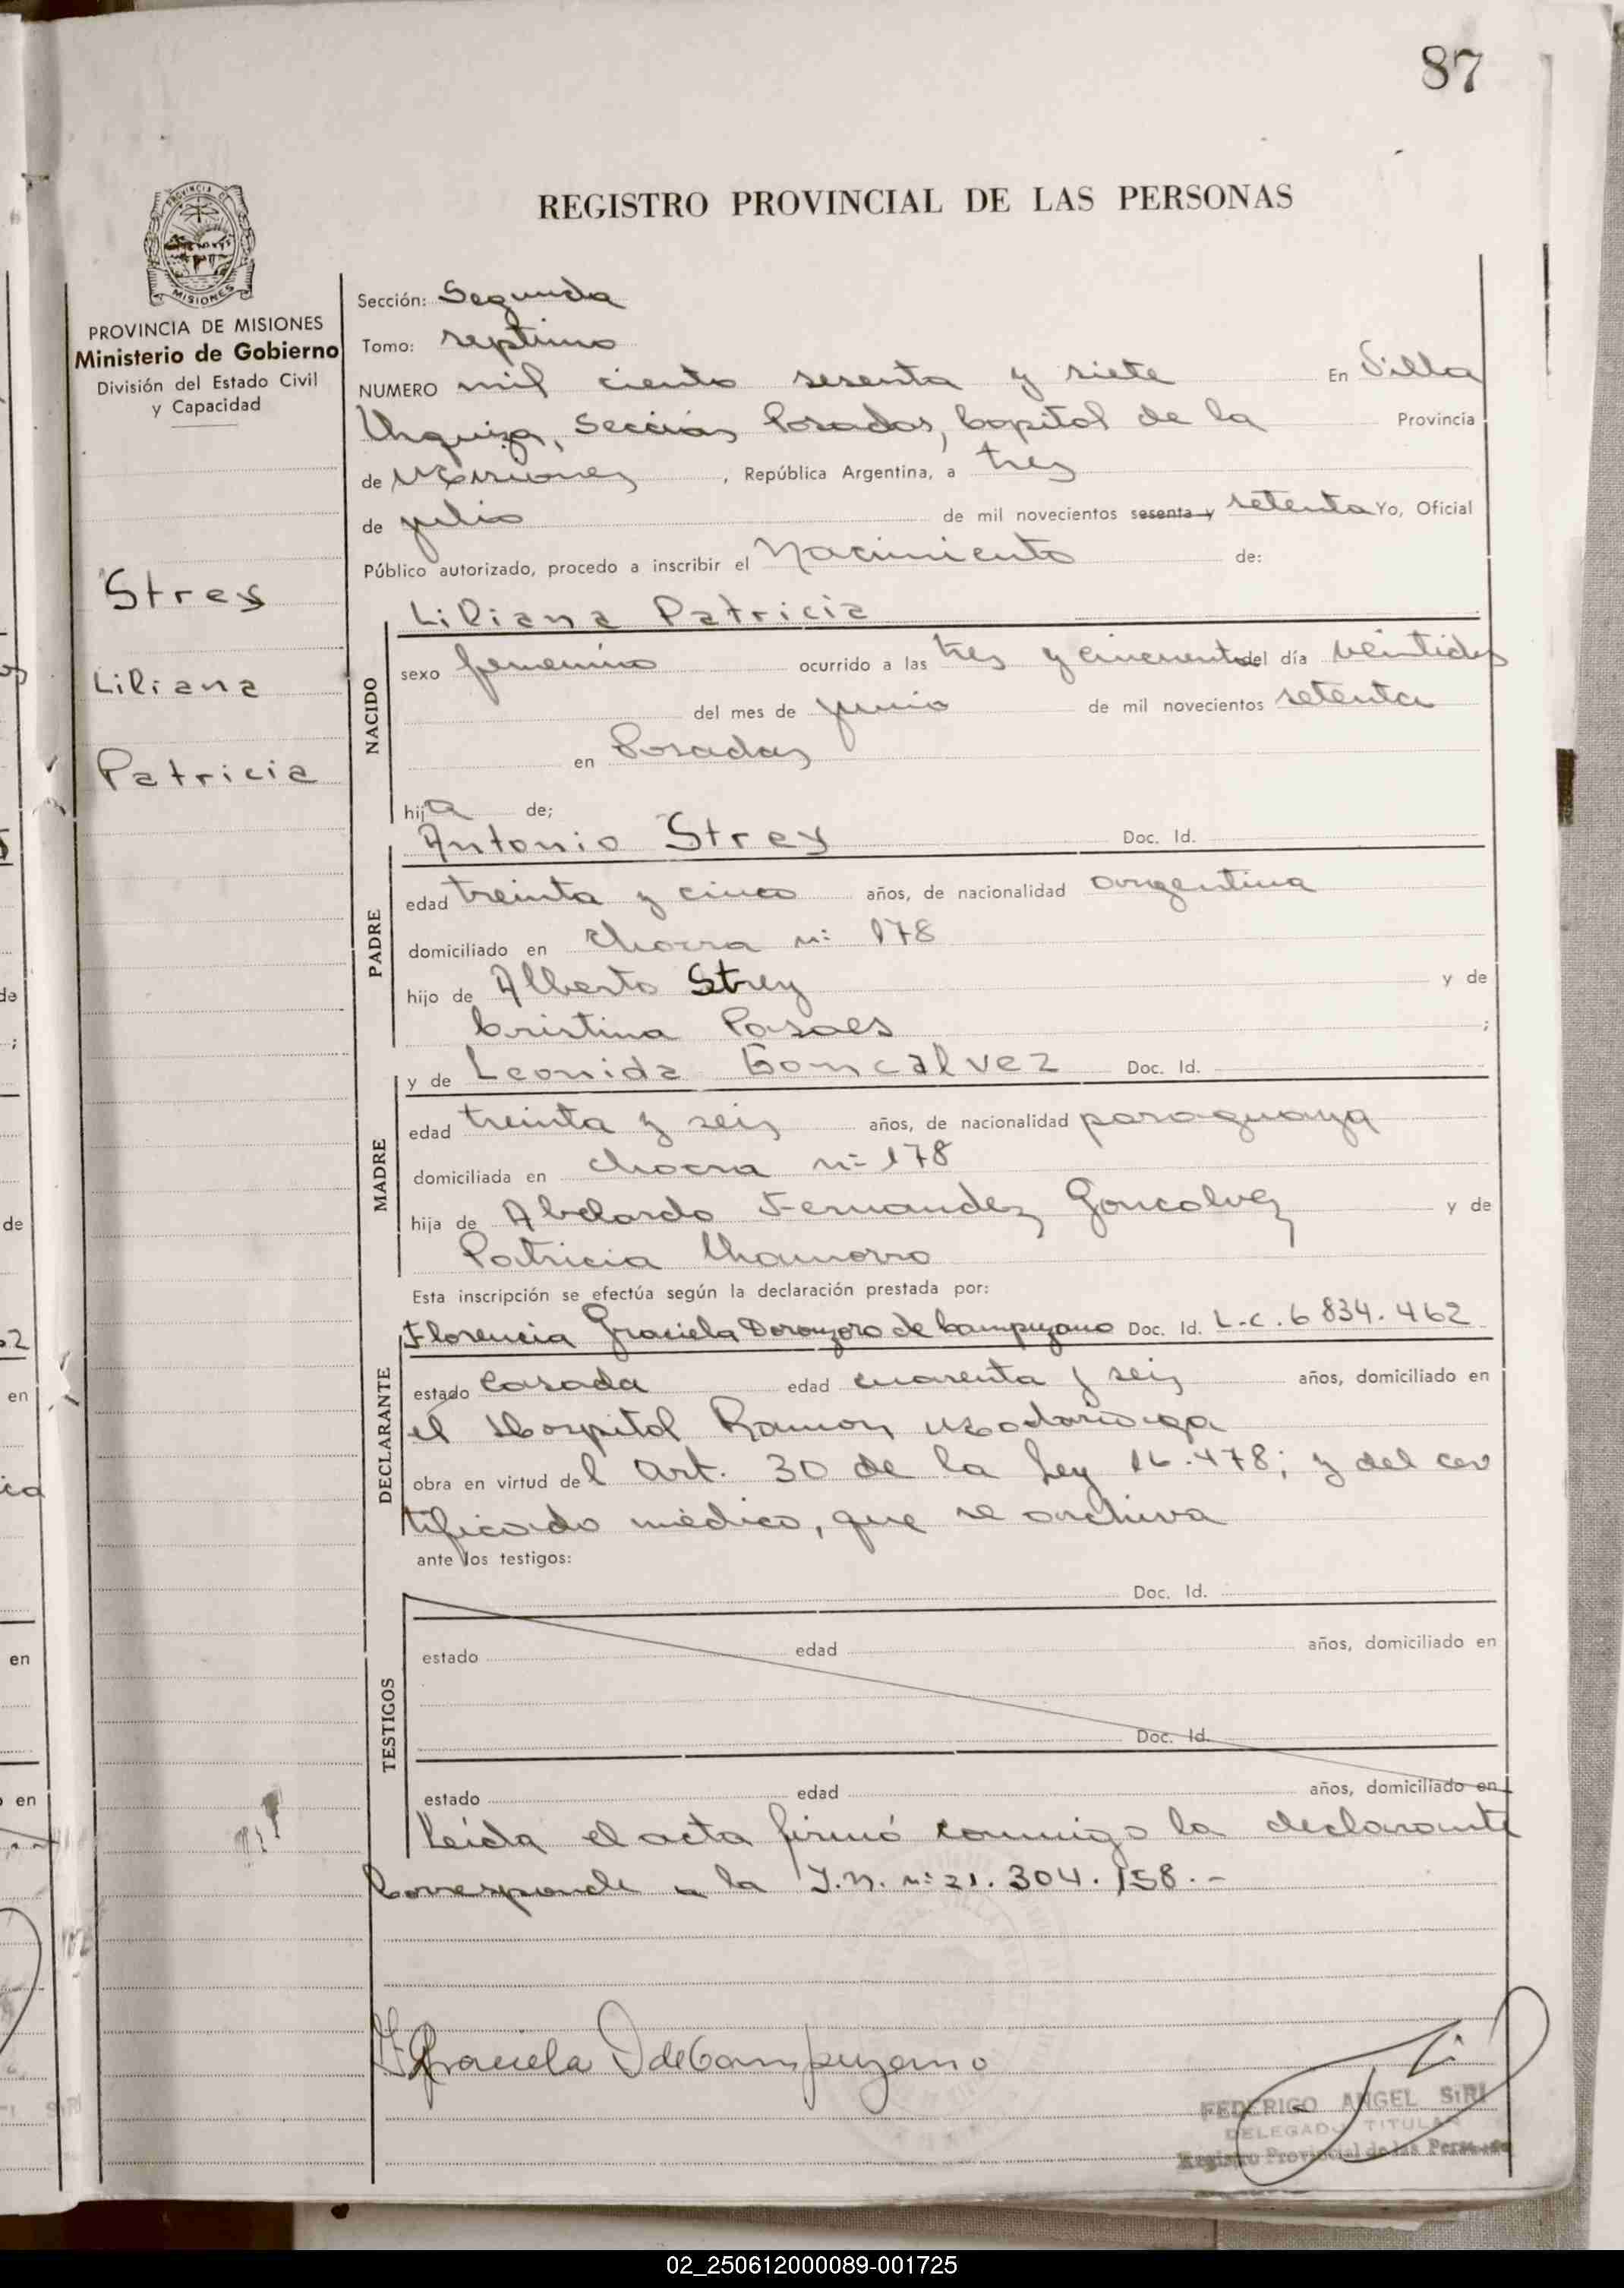 87
REGISTRO PROVINCIAL DE LAS PERSONAS
PROVINCIA
MISIONES
PROVINCIA DE MISIONES
Ministerio de Gobierno
División del Estado Civil
y Capacidad
Strey
Liliana
Patricia
Sección: Segunda
Tomo: septimo
NUMERO mil ciento sesenta y siete En Villa
Urquiza, Sección Posadas, Capital de la Provincia
de Misiones, República Argentina, a tres
de julio de mil novecientos sesenta y setenta Yo, Oficial
Público autorizado, procedo a inscribir el Nacimiento de:
Liliana Patricia
NACIDO
sexo femenino ocurrido a las tres y cincuenta del día veintidos
del mes de junio de mil novecientos setenta
en Posadas
hija de;
Antonio Strey Doc. Id.
PADRE
edad treinta y cinco años, de nacionalidad argentina
domiciliado en Chacra nº 178
hijo de Alberto Strey y de
Cristina ;
y de Leonida Goncalvez Doc. Id.
MADRE
edad treinta y seis años, de nacionalidad paraguaya
domiciliada en chacra nº 178
hija de Abelardo Fernandez Goncalvez y de
Patricia Chamorro
Esta inscripción se efectúa según la declaración prestada por:
Florencia Graciela de Campuzano Doc. Id. L.C. 6 834.462
DECLARANTE
estado Casada edad cuarenta y seis años, domiciliado en
el Hospital Ramon Madariaga
obra en virtud del Art. 30 de la Ley 16.478; y del cer
tificado médico, que se archiva
ante los testigos:
Doc. Id.
TESTIGOS
estado edad años, domiciliado en
Doc. Id.
estado edad años, domiciliado en
Leída el acta firmó conmigo la declarante
Corresponde a la I.N. nº 21.304.158.-
F Graciela D de Campuzano
FEDERICO ANGEL SIRI
DELEGADO TITULAR
Registro Provincial de las Personas
02_250612000089-001725